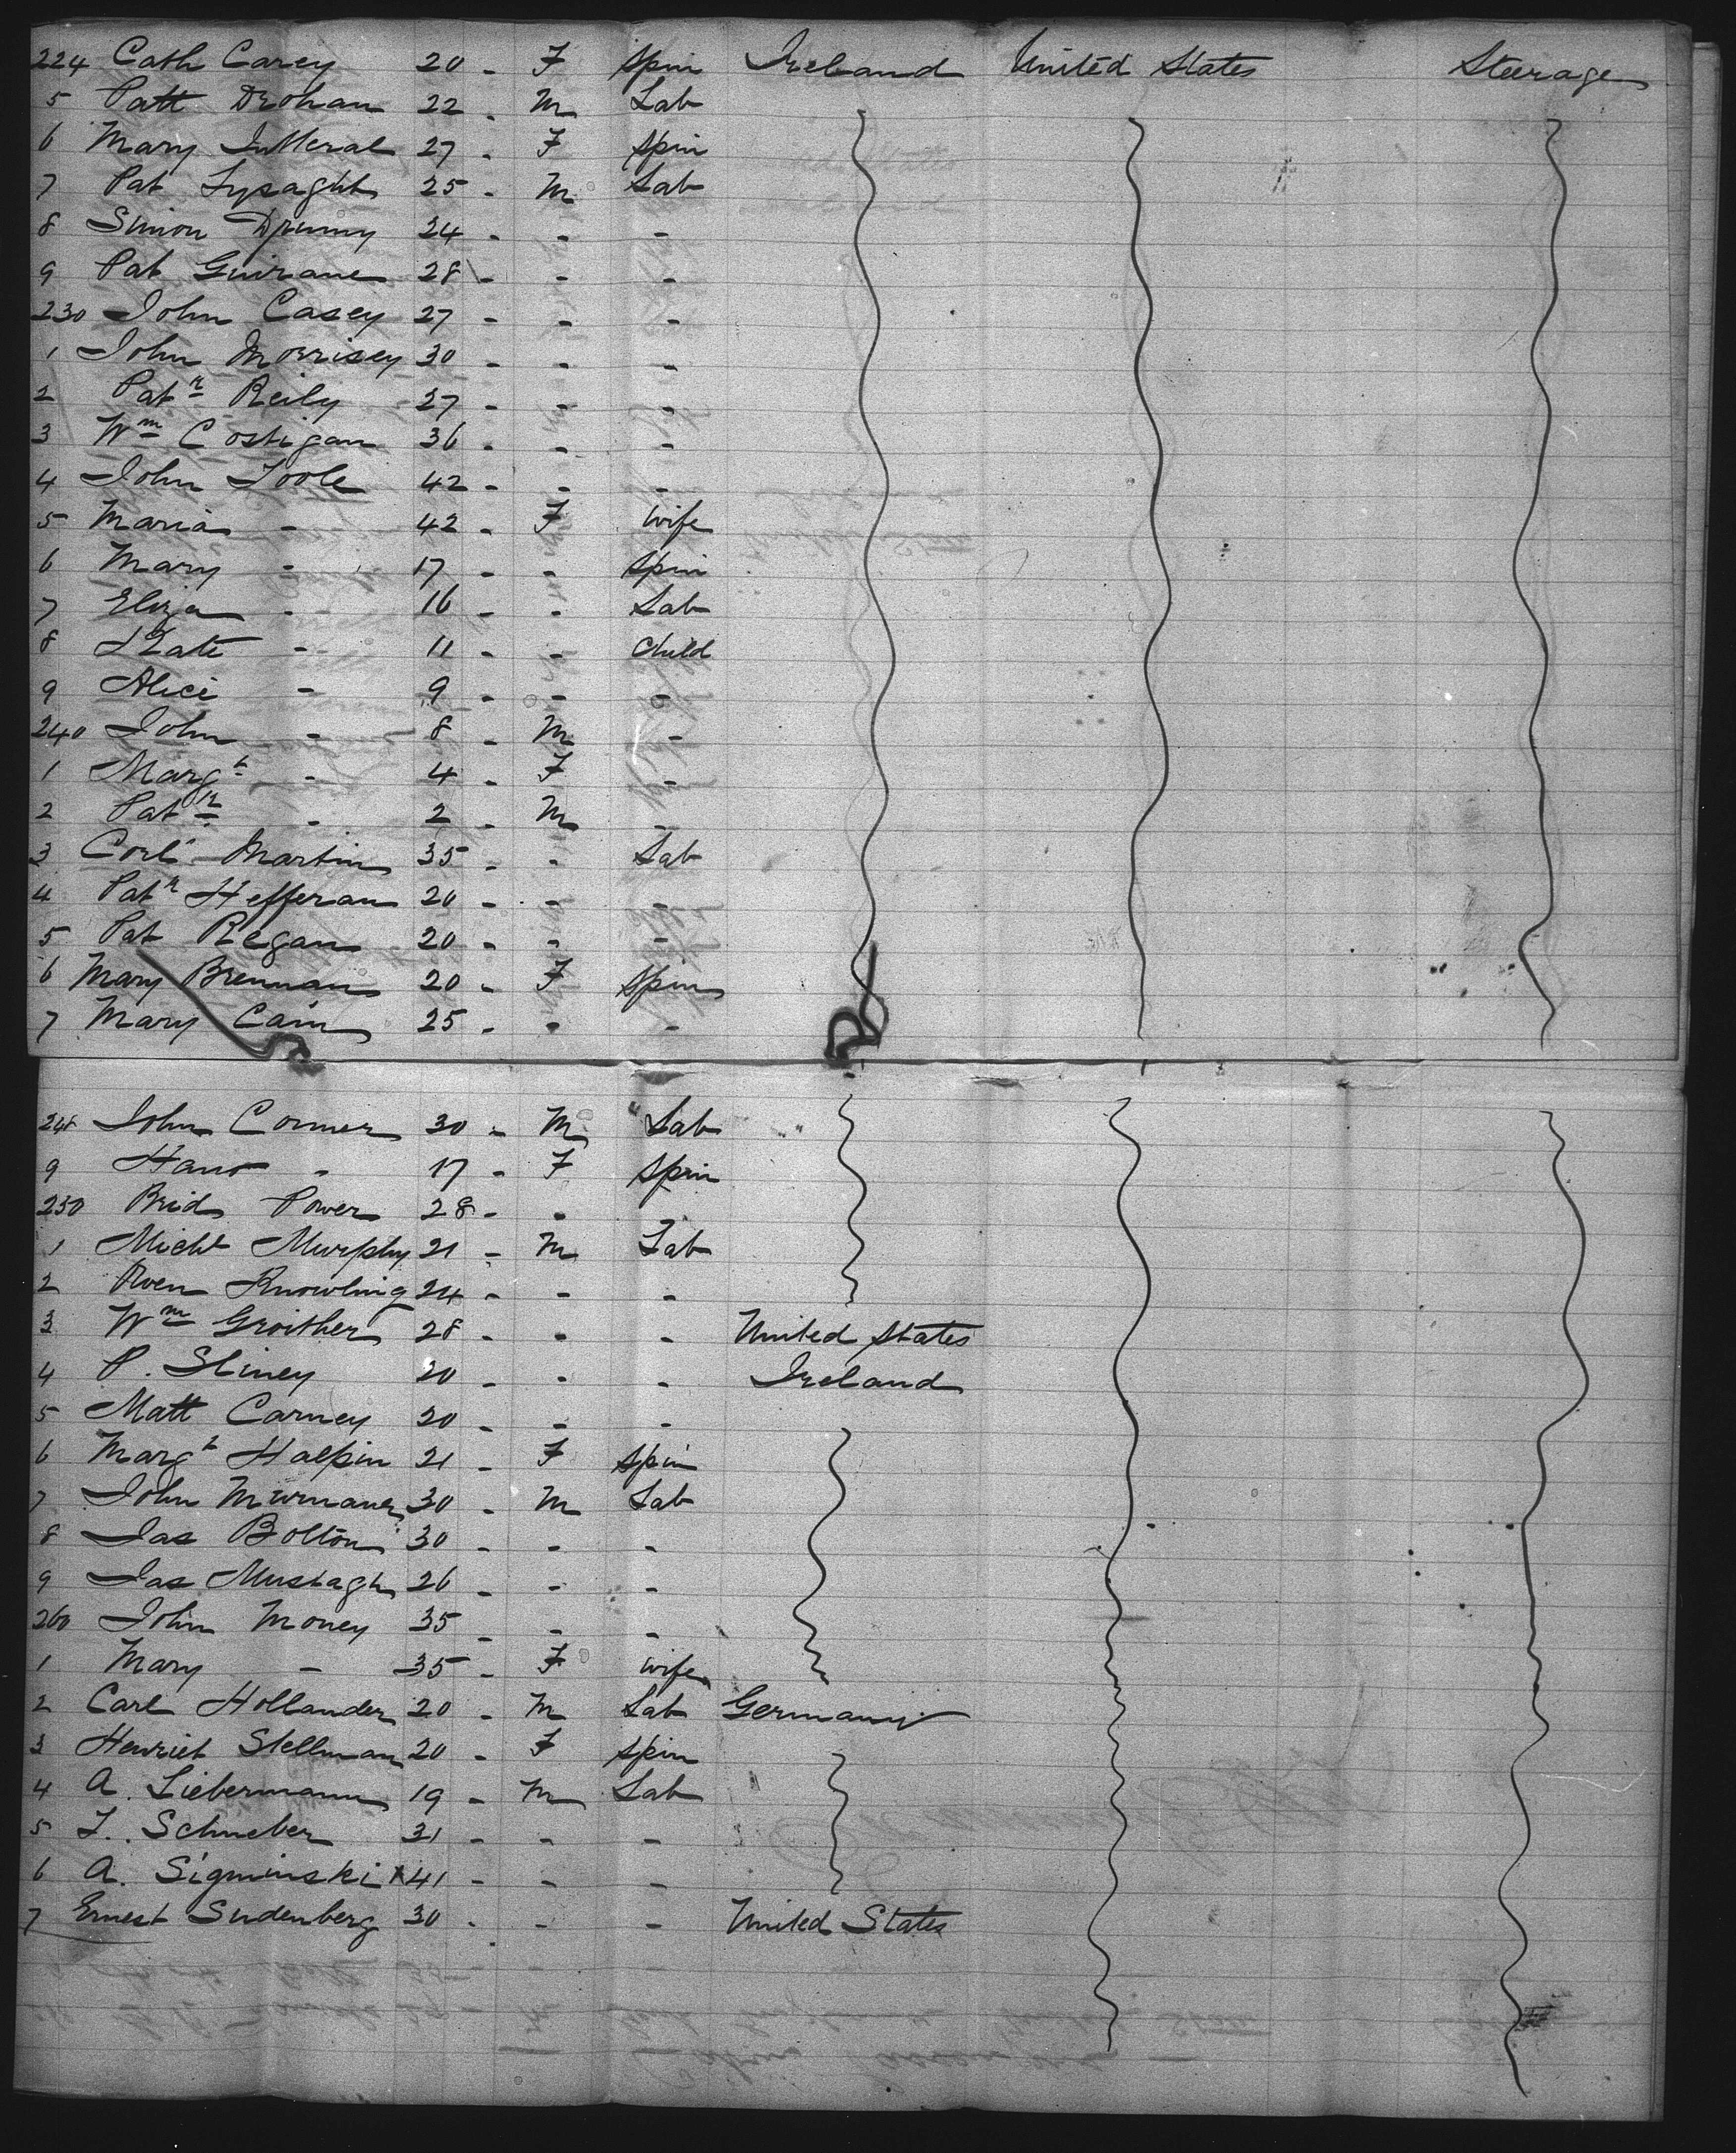 224 Cath Carey 20 - F Spin Ireland United States Steerage
5 Patt Drohan 22 - M Lab
6 Mary 27 - F Spin
7 Pat Lysaght 25 - M Lab
8 Simon 24 - - -
9 Pat Guirane 28 - - -
230 John Casey 27 - - -
1 John Morrisey 30 - - -
2 Patk Reily 27 - - -
3 Wm Costigan 36 - - -
4 John Toole 42 - - -
5 Maria - 42 - F Wife
6 Mary - 17 - - Spin
7 Eliza - 16 - - Lab
8 Kate - 11 - - Child
9 Alice - 9 - - -
240 John - 8 - M -
1 Margt - 4 - F -
2 Patk - 2 - M -
3 Corl Martin 35 - - Lab
4 Patk Hefferan 20 - - -
5 Pat Regan 20 - - -
6 Mary Brennan 20 - F Spin
7 Mary Cain 25 - - -
248 John Conner 30 - M Lab
9 - 17 - F Spin
250 Brid Power 28 - -
1 Michl Murphy 21 - M Lab
2 Owen Knowling 24 - - -
3 Wm Groither 28 - - - United States
4 P. Sliney 20 - - - Ireland
5 Matt Carney 20 - - -
6 Margt Halpin 21 - F Spin
7 John 30 - M Lab
8 Jas Bolton 30 - - -
9 Jas Mustagh 26 - - -
260 John Money 35 - - -
1 Mary - 35 - F Wife
2 Carl Hollander 20 - M Lab Germany
3 Henriet Stellman 20 - F Spin
4 A. Liebermann 19 - M Lab
5 Schueber 31 - - -
6 A. Sigminski 41 - - -
7 Ernest Sudenberg 30 - - - United States